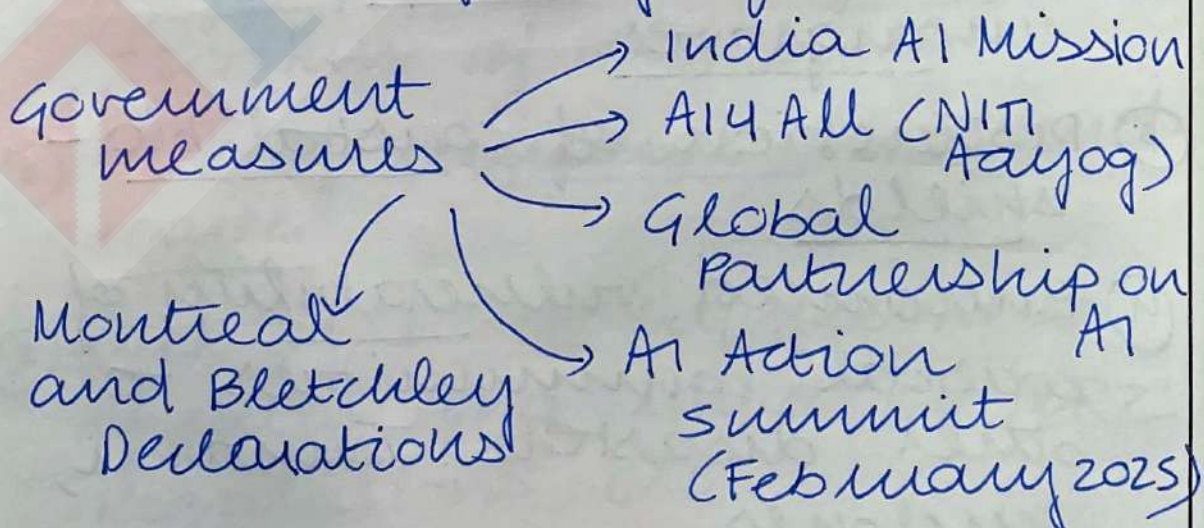 Government
measures
India AI Mission
AI4 All (NITI
Aayog)
Global
Partnership on
AI
AI Action
summit
(February 2025)
Montreal
and Bletchley
Declarations